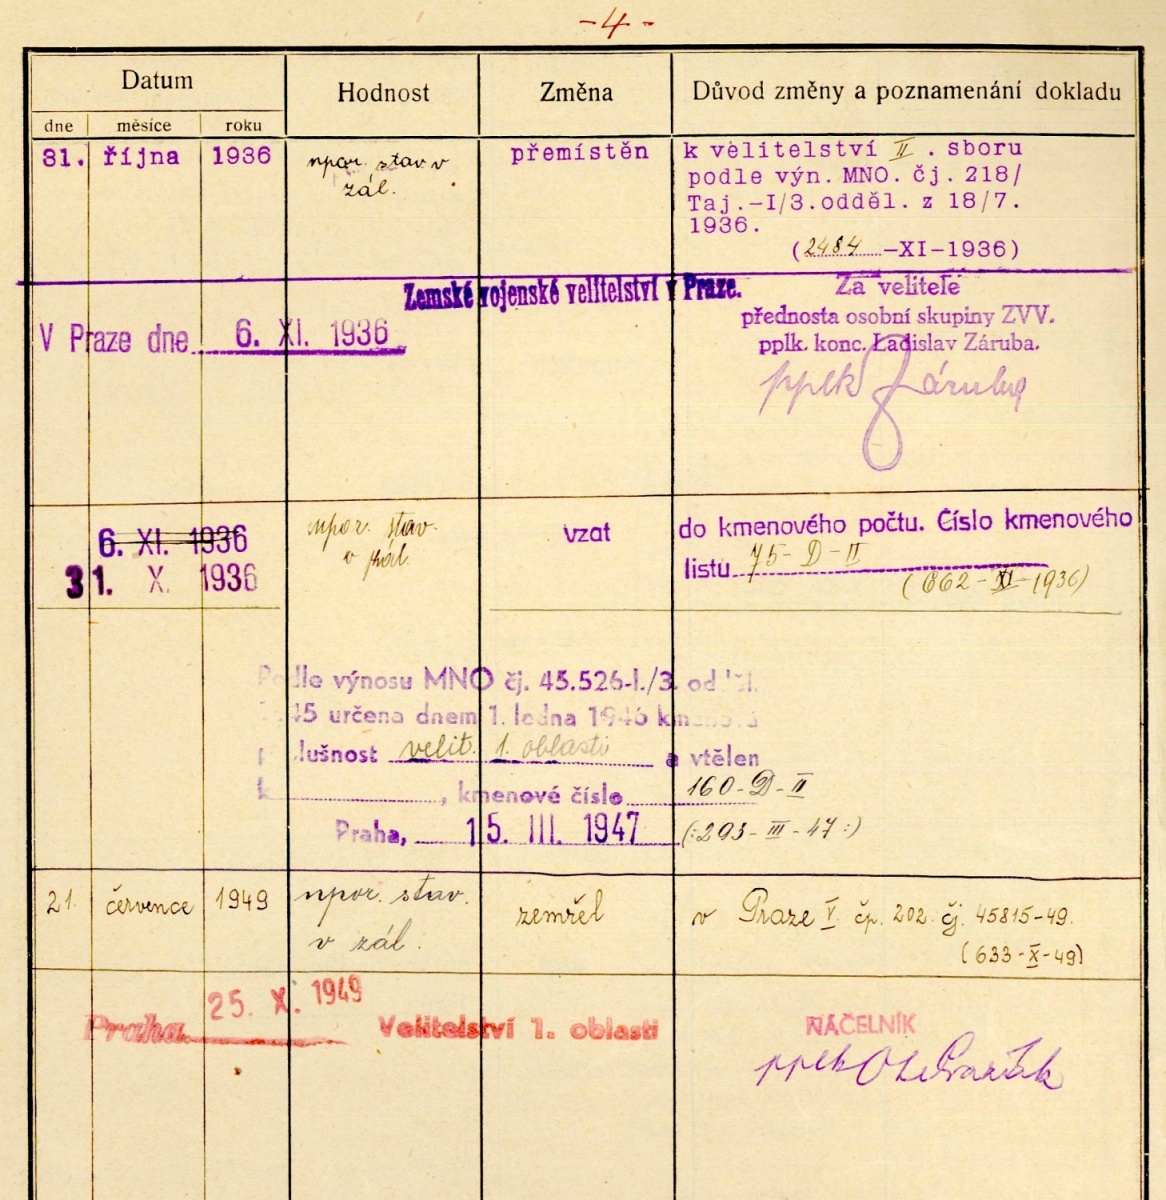 -4-
Datum
Hodnost
Změna
Důvod změny a poznamenání dokladu
dne měsíce roku
31. října 1936
npor. stav v
zál.
přemístěn
k velitelství II. sboru
podle výn. MNO. čj. 218/
Taj.-I/3.odděl. z 18/7.
1936.
(2484-XI-1936)
Zemské vojenské velitelství v Praze.
V Praze dne 6. XI. 1936
Za velitele
přednosta osobní skupiny ZVV.
pplk. konc. Ladislav Záruba.
pplk Záruba
6. XI. 1936
31. X. 1936
npor. stav.
v zál.
vzat
do kmenového počtu. Číslo kmenového
listu 75-D-II
(862-XI-1936)
Podle výnosu MNO čj. 45.526-I./3. odděl.
45 určena dnem 1. ledna 1946 kmenová
příslušnost velit. 1. oblasti a vtělen
k , kmenové číslo 160-D-II
Praha, 15. III. 1947 (:293-III-47:)
21. července 1949
npor. stav.
v zál.
zemřel
v Praze V. čp. 202. čj. 45815-49.
(633-X-49)
Praha 25. X. 1949
Velitelství 1. oblasti
NÁČELNÍK
pplk